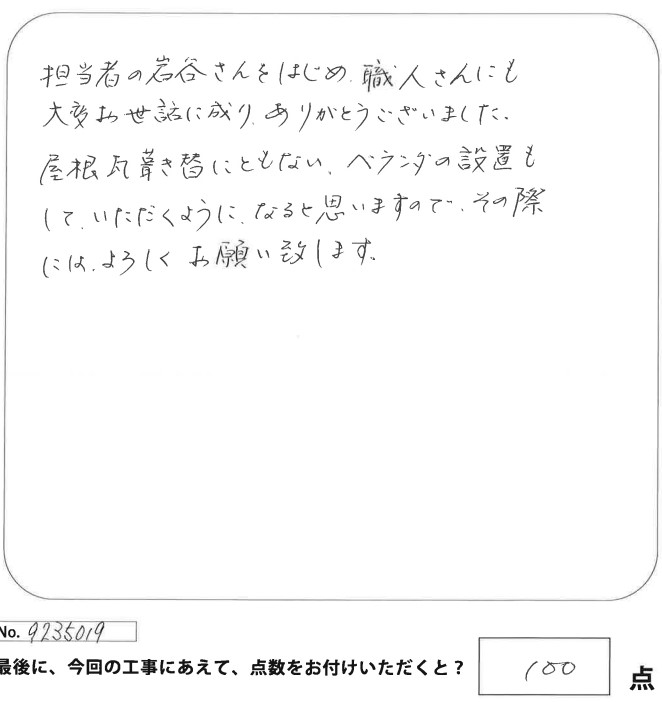 担当者の岩谷さんをはじめ、職人さんにも
大変お世話に成り、ありがとうございました。
屋根瓦葺き替にともない、ベランダの設置も
して、いただくように、なると思いますので、その際
には、よろしくお願い致します。
No. 9235019
最後に、今回の工事にあえて、点数をお付けいただくと？ 100 点